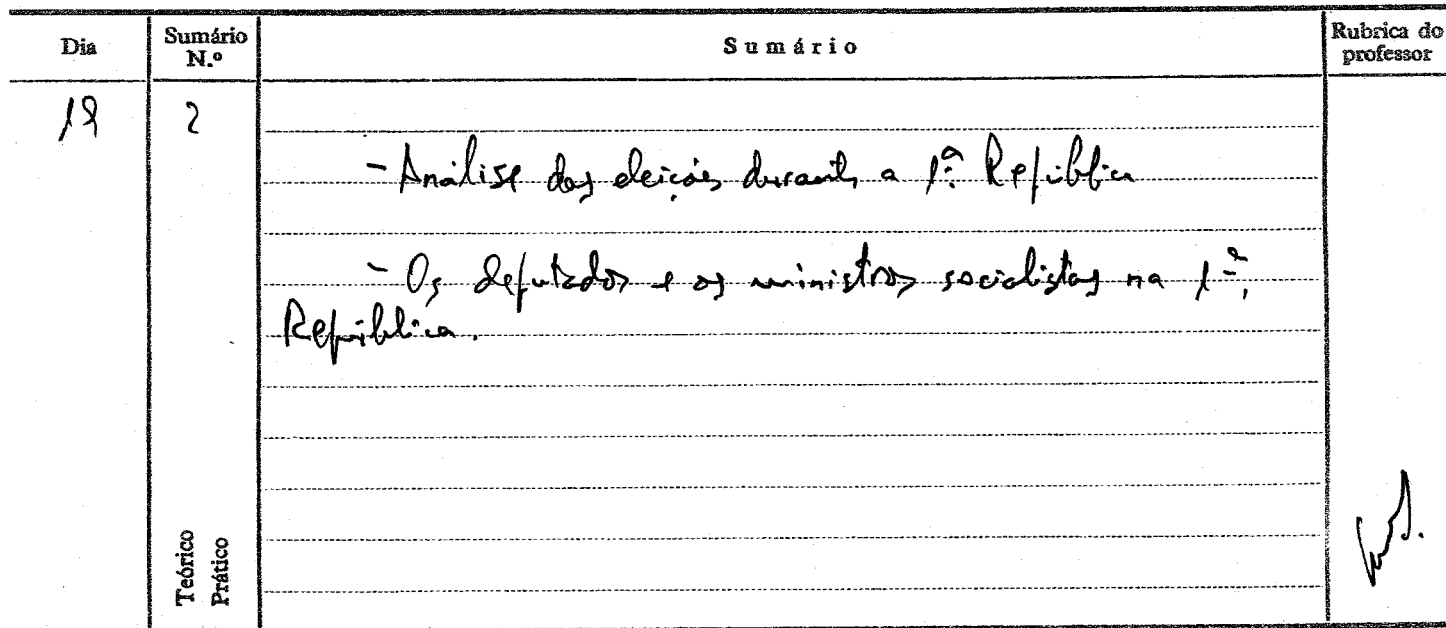 Dia
Sumário N.º
Sumário
Rubrica do professor
19
2
- Análise das eleições durante a 1ª República
- Os deputados e os ministros socialistas na 1ª
República.
Teórico
Prático